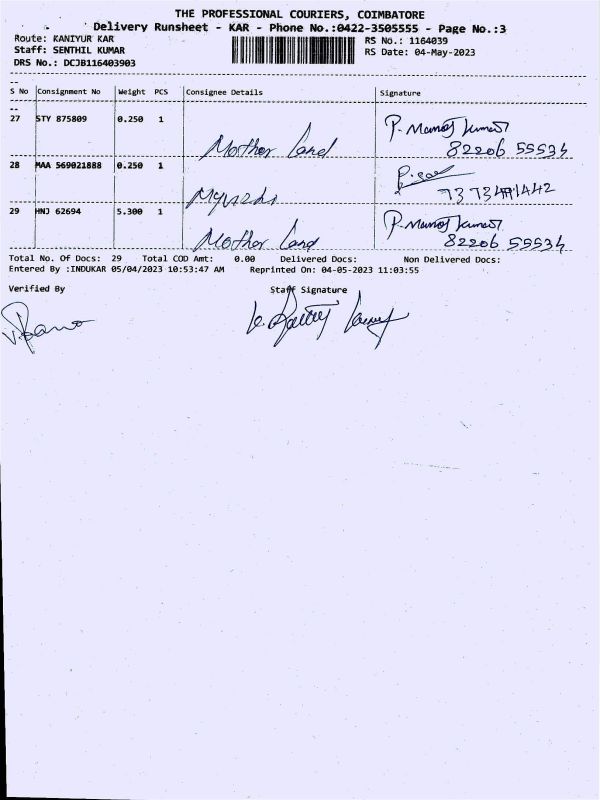 THE PROFESSIONAL COURIERS, COIMBATORE
Delivery Runsheet - KAR - Phone No.:0422-3505555 - Page No.:3
Route: KANIYUR KAR
RS No.: 1164039
Staff: SENTHIL KUMAR
RS Date: 04-May-2023
DRS No.: DCJB116403903
S No Consignment No Weight PCS Consignee Details Signature
27 STY 875809 0.250 1 Mother Land P. Manoj Kumar
82206 55534
28 MAA 569021888 0.250 1
29 HNJ 62694 5.300 1 Mother Land P. Manoj Kumar
82206 55534
Total No. Of Docs: 29 Total COD Amt: 0.00 Delivered Docs: Non Delivered Docs:
Entered By :INDUKAR 05/04/2023 10:53:47 AM Reprinted On: 04-05-2023 11:03:55
Verified By Staff Signature